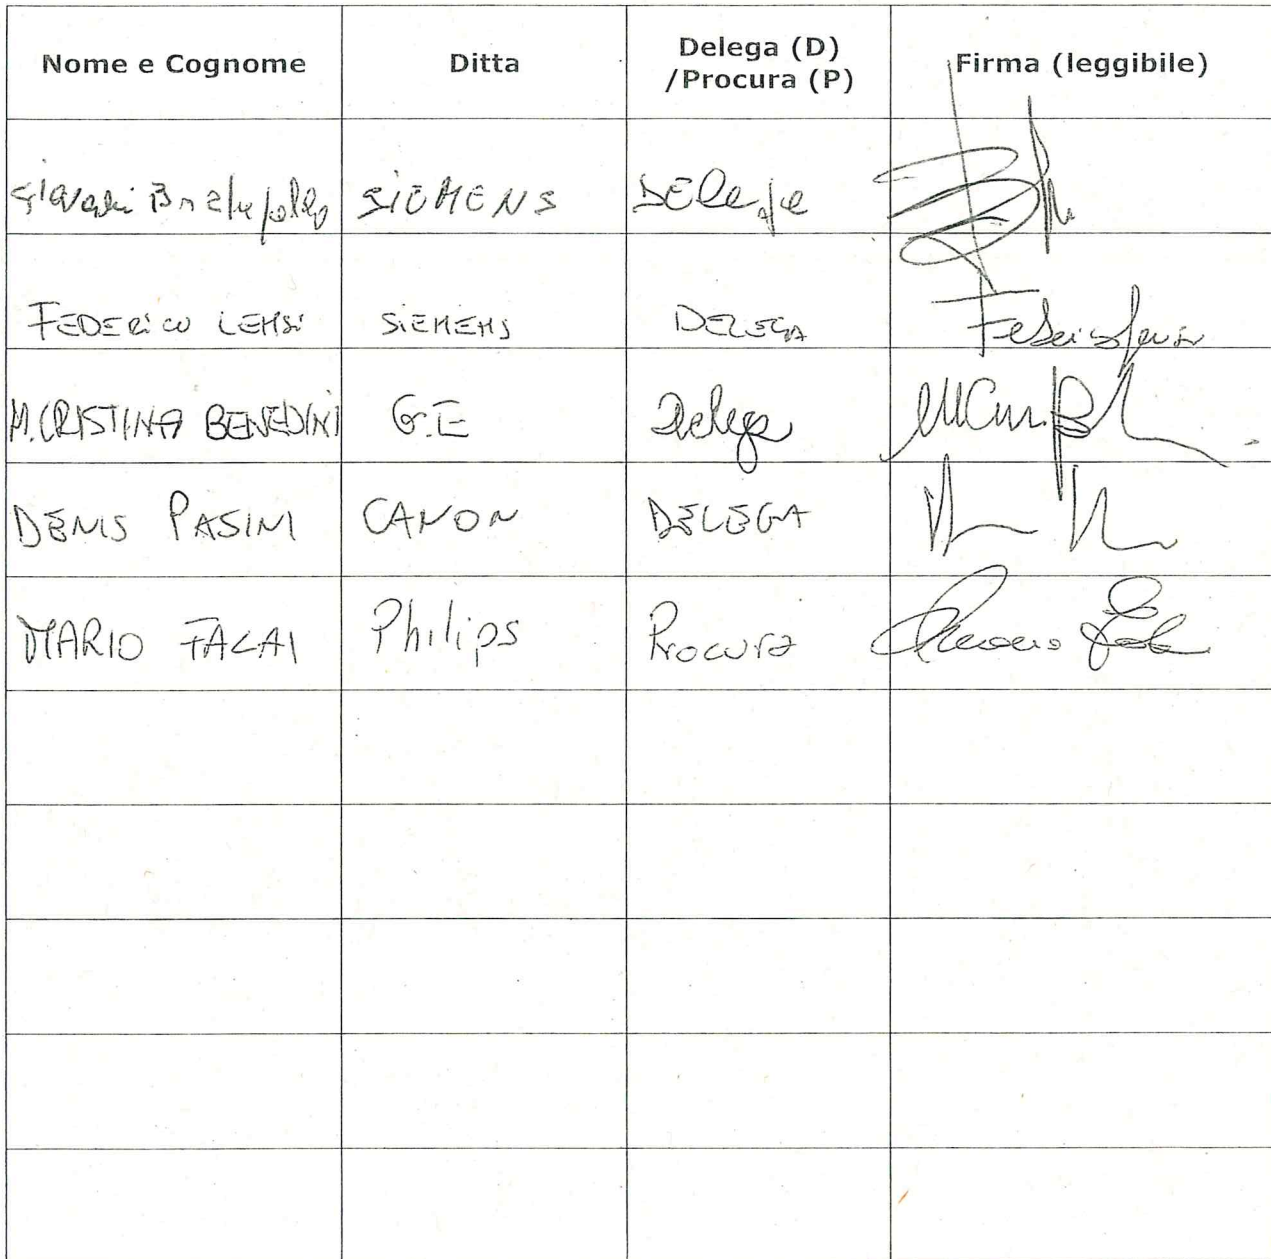 Nome e Cognome Ditta Delega (D) /Procura (P) Firma (leggibile)
SIEMENS DElega
FEDERICO SIEMENS DELEGA
M.CRISTINA BENEDINI G.E Delega
DENIS PASINI CANON DELEGA
MARIO FALAI Philips Procura